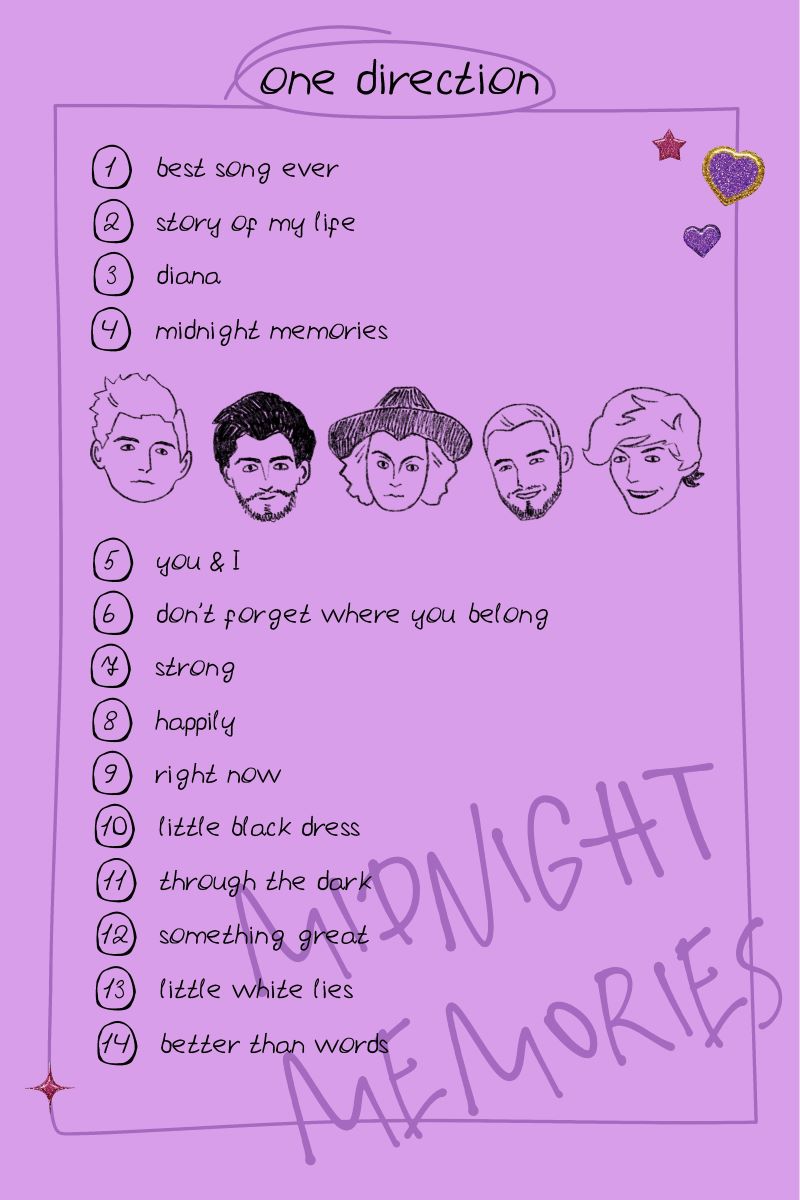 one direction
1 best song ever
2 story of my life
3 diana
4 midnight memories
5 you & I
6 don't forget where you belong
7 strong
8 happily
9 right now
10 little black dress
11 through the dark
12 something great
13 little white lies
14 better than words
MIDNIGHT
MEMORIES